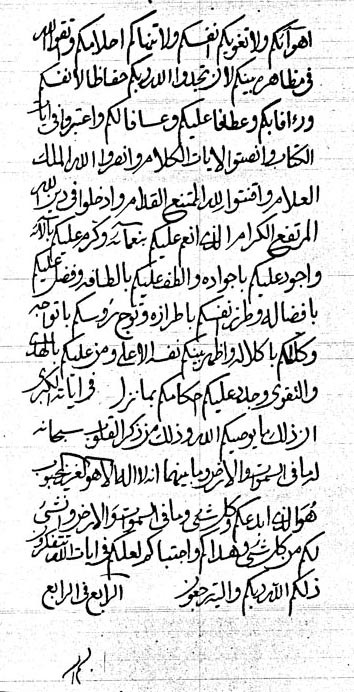 اهوآئكم ولا تغوينكم انفسكم ولا تنهاكم احلامكم وتقوا الله
في مظاهر بينكم لان تجدوا الله ربكم حفاظا لانفسكم
ورءافا بكم وعطافا عليكم وعسافا لكم واعتبروا في ايات
الكتاب وانصتوا لايات الكلام واتقوا الله الملك
العلام واقنتوا لله الممتنع القدام وادخلوا في دين الله
المرتفع الكرام الذي انعم عليكم بنعمآئه وكرم عليكم بالآئه
واجود عليكم باجواده والطف عليكم بالطافه وفضل عليكم
بافضاله وطرز نفسكم باطرازه وتوج رؤسكم باتواجه
وكللكم باكلاله واظهر بينكم نفسه الاعلى ومن عليكم بالهدى
والتقوى وجدد عليكم احكامكم بما نزل في اياته الكبرى
ان ذلك ما يوصيكم الله وذلك من ذكر القلوب سبحانه
له ما في السموات والارض وما بينهما انه لا اله الا هو العزيز المحبوب
هو الذي ابدعكم وكل شيء وما في السموات والارض ونشئ
لكم من كل شيء وهداكم واجتباكم لعلكم في ايات الله تتفكرون
ذلكم الله ربكم واليه ترجعون الرابع في الرابع